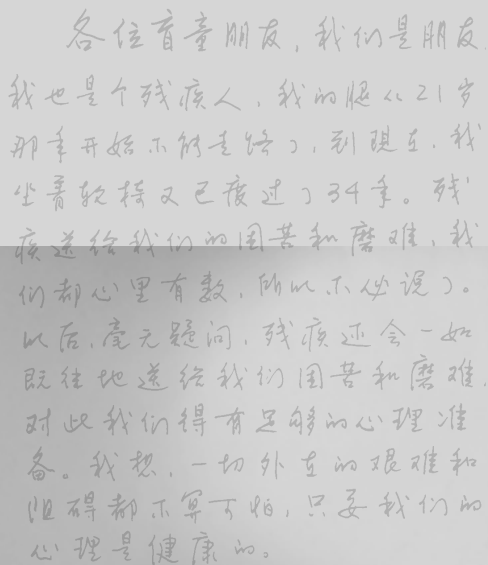 各位盲童朋友，我们是朋友。
我也是个残疾人，我的腿从21岁
那年开始不能走路了，到现在，我
坐着软椅又已度过了34年。残
疾送给我们的困苦和磨难，我
们都心里有数，所以不必说了。
以后，毫无疑问，残疾还会一如
既往地送给我们困苦和磨难，
对此我们得有足够的心理准
备。我想，一切外在的艰难和
阻碍都不算可怕，只要我们的
心理是健康的。